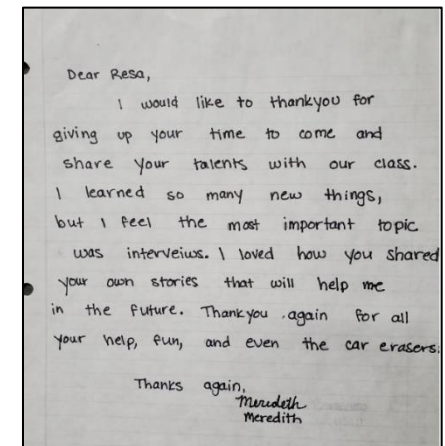 Dear Resa,
I would like to thankyou for
giving up your time to come and
share your talents with our class.
I learned so many new things,
but I feel the most important topic
was interveiws. I loved how you shared
your own stories that will help me
in the future. Thankyou again for all
your help, fun, and even the car erasers.
Thanks again,
Meredith
Meredith